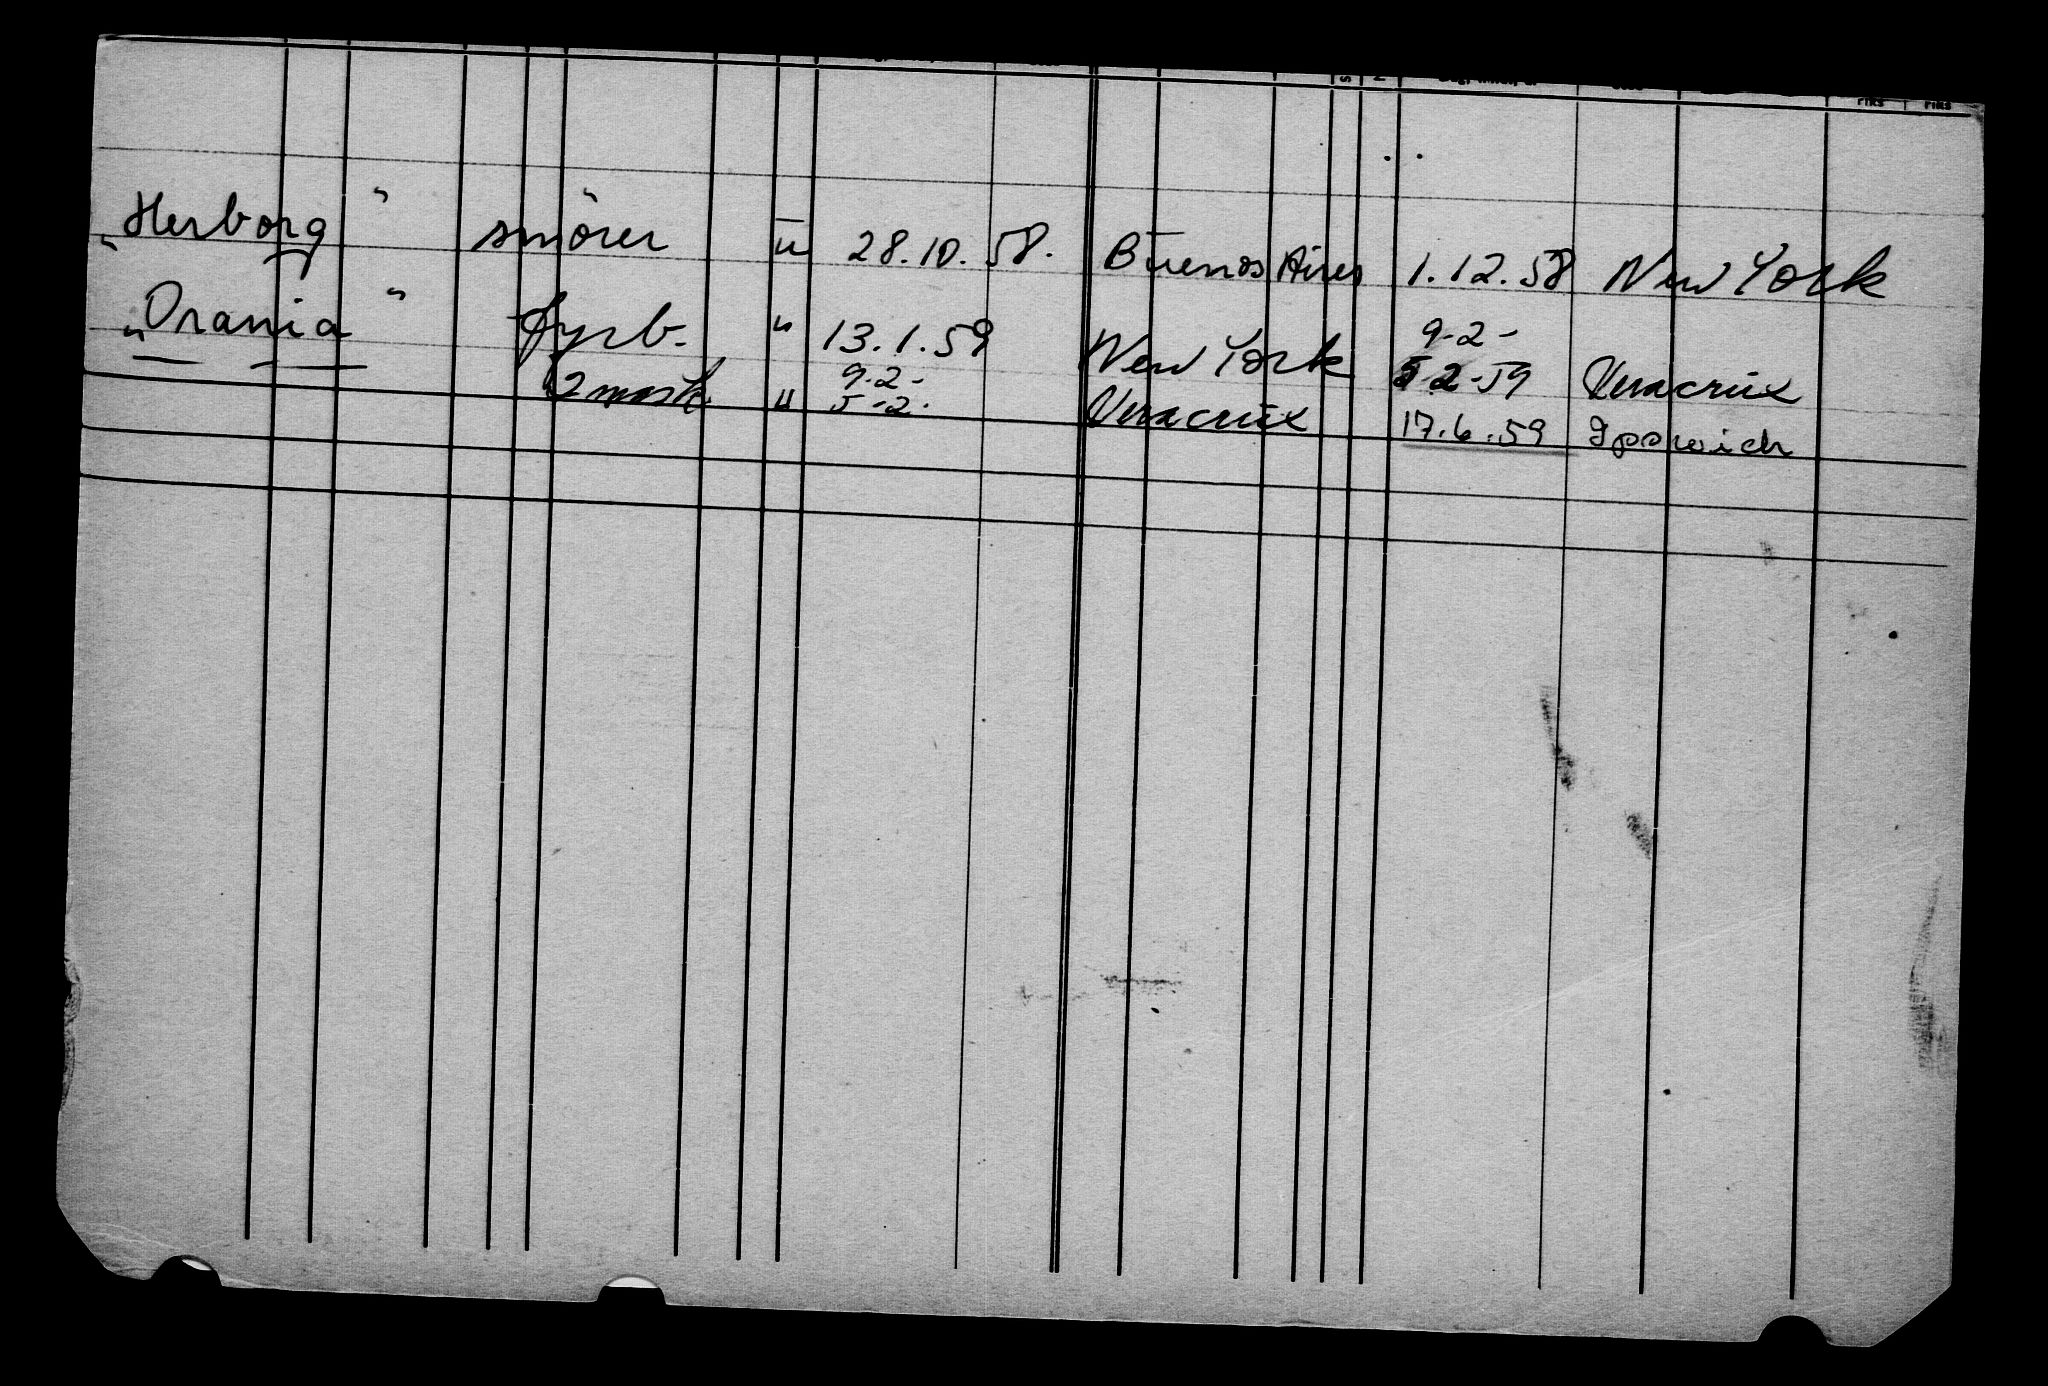 riks riks
„Herborg" smörer " 28.10.58. Buenos Aires 1.12.58 New York
„Orania" fyrb. " 13.1.59 New York 9-2-
5-2-59 Veracrux
2 mask. " 9-2- 5-2- Veracrux 17.6.59 Ipswich